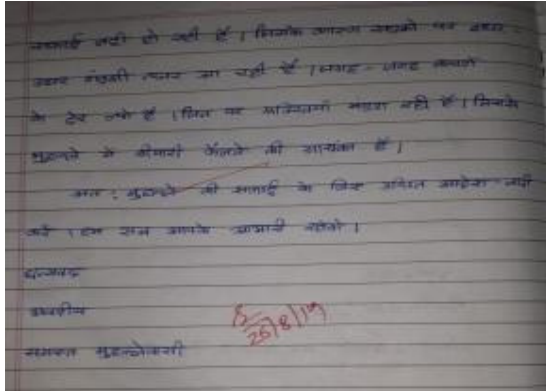 सफाई नहीं हो रही है । जिसके कारण सड़कों पर इधर-
उधर गंदगी नजर आ रही है । जगह - जगह कचरों
के ढेर लगे हैं । जिन पर मक्खियां मंडरा रही है । जिसके
मुहल्ले में बीमारी फैलने की आशंका है ।
अतः मुहल्ले की सफाई के लिए उचित आदेश जारी
करें । हम सब आपके आभारी रहेंगे ।
धन्यवाद
भवदीय
समस्त मुहल्लेवासी
26/8/19